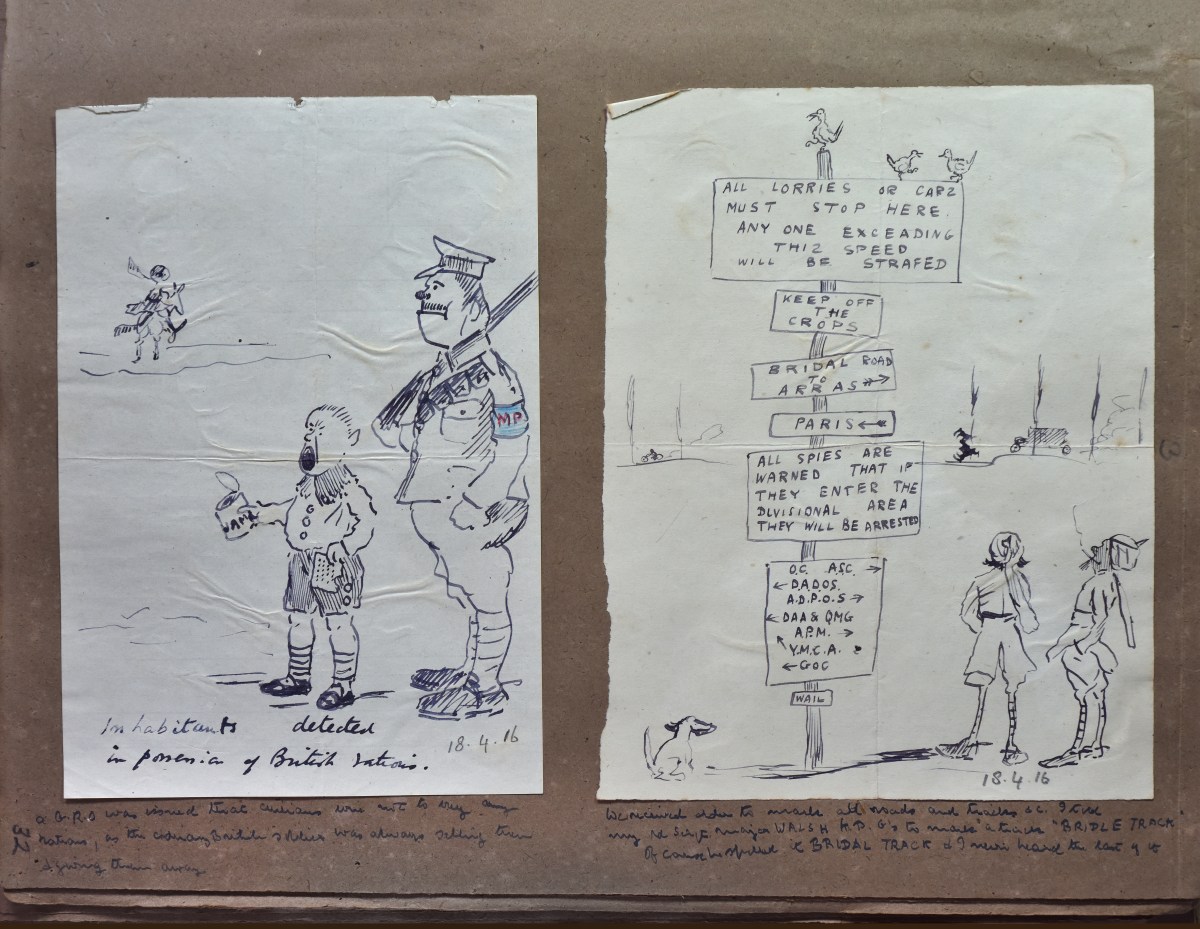 MP
JAM
Inhabitants detected
in possession of British rations.
18.4.16
a G.R.O was issued that civilians were not to buy any
rations, as the ordinary British soldier was always selling them
& giving them away
ALL LORRIES OR CARZ
MUST STOP HERE.
ANY ONE EXCEADING
THIZ SPEED
WILL BE STRAFED
KEEP OFF
THE
CROPS
BRIDAL ROAD
TO
ARRAS
PARIS
ALL SPIES ARE
WARNED THAT IF
THEY ENTER THE
DIVISIONAL AREA
THEY WILL BE ARRESTED
O.C. ASC.
D.A.D.O.S.
A.D.P.O.S
DAA & QMG
A.P.M.
Y.M.C.A.
GOC
WAIL
18.4.16
We received orders to mark all roads and tracks &c. I told
my Sergt major WALSH K.D.G's to mark a track "BRIDLE TRACK
Of course he spelled it BRIDAL TRACK & I never heard the last of it